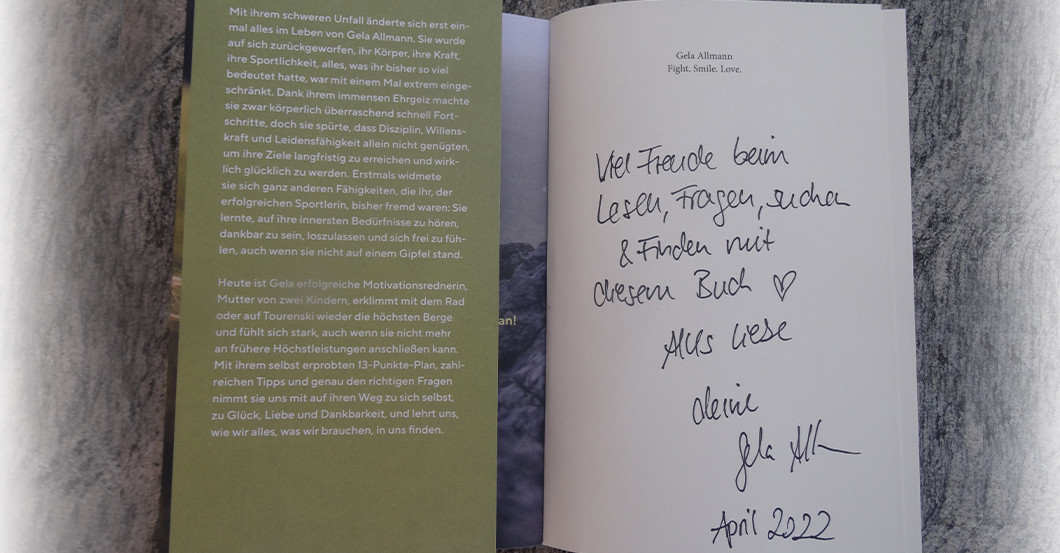 Mit ihrem schweren Unfall änderte sich erst ein-
mal alles im Leben von Gela Allmann. Sie wurde
auf sich zurückgeworfen, ihr Körper, ihre Kraft,
ihre Sportlichkeit, alles, was ihr bisher so viel
bedeutet hatte, war mit einem Mal extrem einge-
schränkt. Dank ihrem immensen Ehrgeiz machte
sie zwar körperlich überraschend schnell Fort-
schritte, doch sie spürte, dass Disziplin, Willens-
kraft und Leidensfähigkeit allein nicht genügten,
um ihre Ziele langfristig zu erreichen und wirk-
lich glücklich zu werden. Erstmals widmete
sie sich ganz anderen Fähigkeiten, die ihr, der
erfolgreichen Sportlerin, bisher fremd waren: Sie
lernte, auf ihre innersten Bedürfnisse zu hören,
dankbar zu sein, loszulassen und sich frei zu füh-
len, auch wenn sie nicht auf einem Gipfel stand.
Heute ist Gela erfolgreiche Motivationsrednerin,
Mutter von zwei Kindern, erklimmt mit dem Rad
oder auf Tourenski wieder die höchsten Berge
und fühlt sich stark, auch wenn sie nicht mehr
an frühere Höchstleistungen anschließen kann.
Mit ihrem selbst erprobten 13-Punkte-Plan, zahl-
reichen Tipps und genau den richtigen Fragen
nimmt sie uns mit auf ihren Weg zu sich selbst,
zu Glück, Liebe und Dankbarkeit, und lehrt uns,
wie wir alles, was wir brauchen, in uns finden.
an!
Gela Allmann
Fight. Smile. Love.
Viel Freude beim
Lesen, Fragen, suchen
& Finden mit
diesem Buch ♡
Alles Liebe
deine
Gela All
April 2022